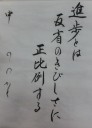 進歩とは
反省のきびしさに
正比例する